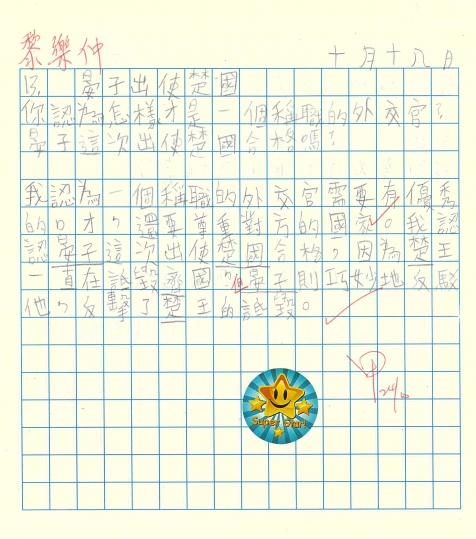 黎樂仲
十月十八日
13. 晏子出使楚國
你認為怎樣才是一個稱職的外交官?
晏子這次出使楚國合格嗎?
我認為一個稱職的外交官需要有優秀
的口才,還要尊重對方的國家。我認
認晏子這次出使楚國合格,因為楚王
一直在詆毀齊國,但晏子則巧妙地反駁
他,反擊了楚王的詆毀。
甲
24/10
Super Star!